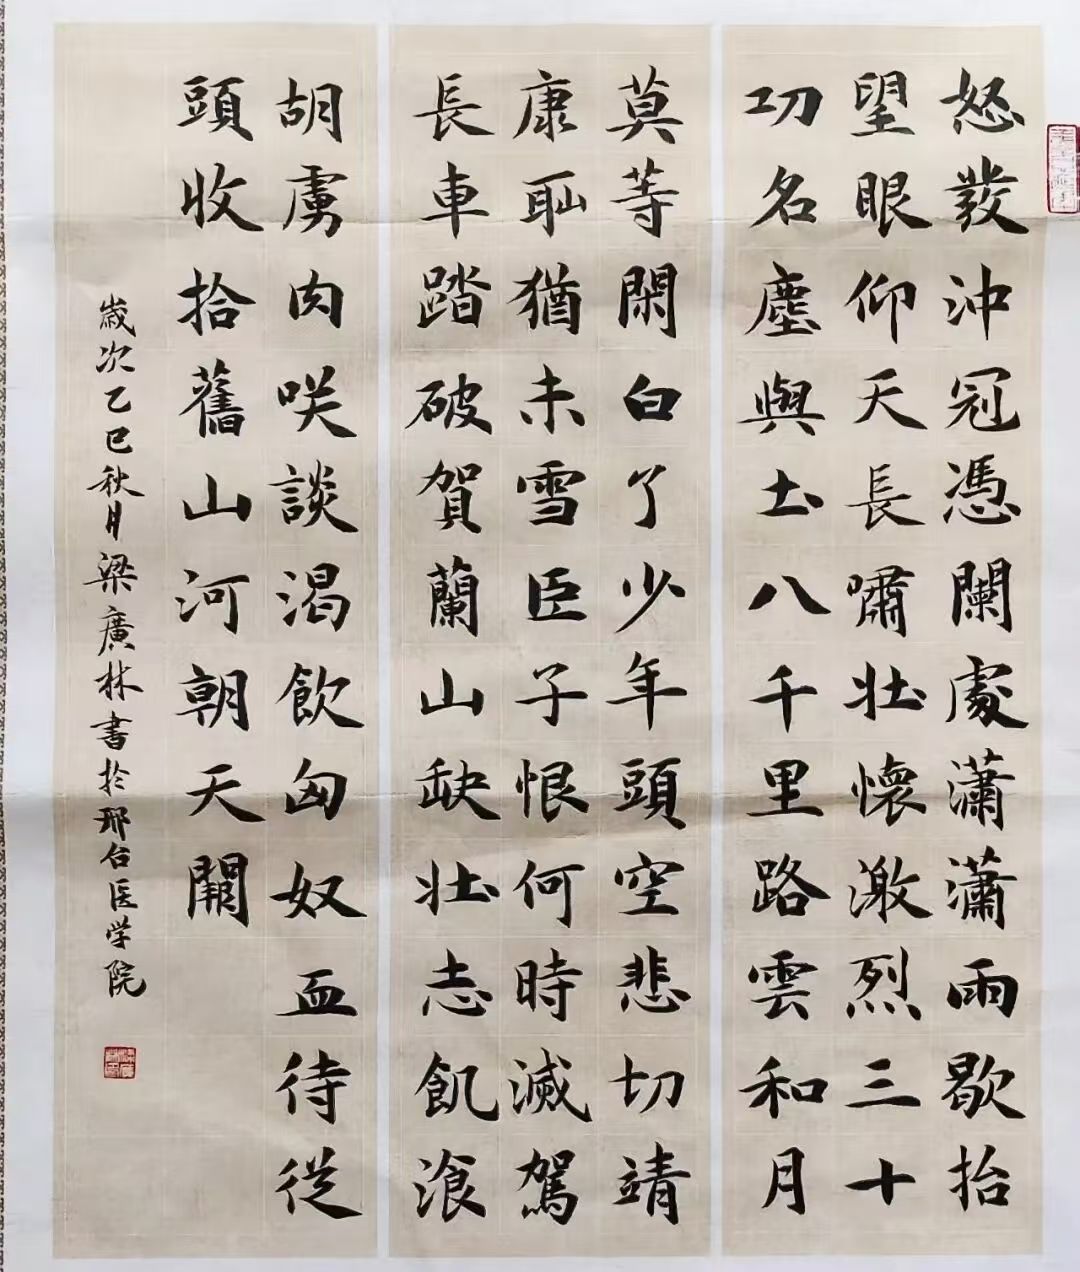 怒發沖冠憑闌處瀟瀟雨歇抬
望眼仰天長嘯壯懷激烈三十
功名塵與土八千里路雲和月
莫等閑白了少年頭空悲切靖
康恥猶未雪臣子恨何時滅駕
長車踏破賀蘭山缺壯志飢飡
胡虜肉咲談渴飲匈奴血待從
頭收拾舊山河朝天闕
歲次乙巳秋月梁廣林書於邢台医学院